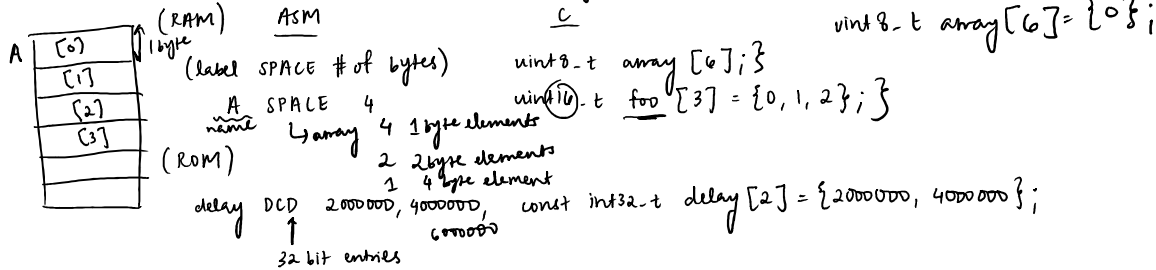 (RAM) ASM C uint8_t array[6]={0};
A [0] 1 byte
[1] (label SPACE # of bytes) uint8_t array [6];}
[2] A SPACE 4 uint16_t foo [3] = {0, 1, 2}; }
[3] name ↳array 4 1 byte elements
(ROM) 2 2byte elements
1 4 byte element
delay DCD 2000000, 4000000, const int32_t delay [2] = {2000000, 4000000};
6000000
32 bit entries